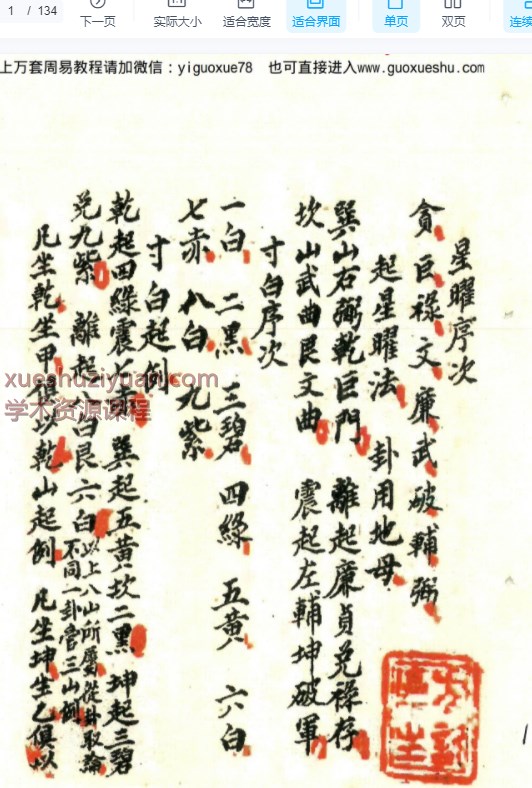 1 / 134
下一页
实际大小
适合宽度
适合界面
单页
双页
连续
上万套周易教程请加微信：yiguoxue78 也可直接进入www.guoxueshu.com
星曜序次
貪 巨 祿 文 廉 武 破 輔 弼
起星曜法 卦用地母
巽山右弼乾巨門 離起廉貞兌祿存
坎山武曲艮文曲 震起左輔坤破軍
寸白序次
一白 二黑 三碧 四綠 五黃 六白
七赤 八白 九紫
寸白起例
乾起四綠震 巽起五黃坎二黑 坤起三碧
兌九紫 離起 白艮六白 以上八山所屬從卦取論
不同一卦管三山例
凡坐乾坐甲 以乾山起例 凡坐坤坐乙俱以
xueshuziyuan.com
学术资源课程
1